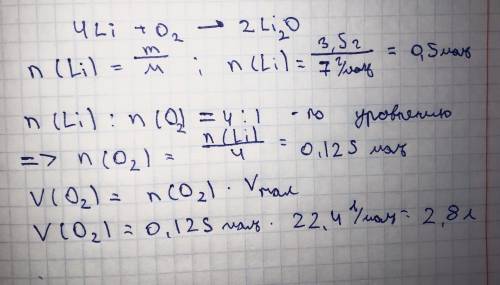 4Li + O₂ → 2Li₂O
n(Li) = m/M ; n(Li) = 3,5г/7 г/моль = 0,5 моль
n(Li) : n(O₂) = 4 : 1 - по уровнению
=> n(O₂) = n(Li)/4 = 0,125 моль
V(O₂) = n(O₂) · Vмол
V(O₂) = 0,125 моль · 22,4 л/моль = 2,8 л